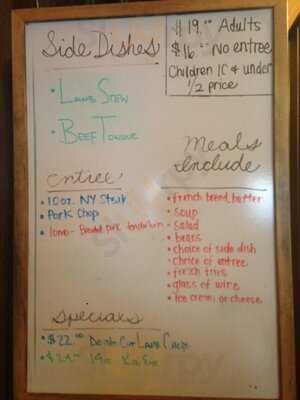 Side Dishes
• Lamb Stew
• Beef Tongue
$19.00 Adults
$16.00 No entree
Children 10 & under
1/2 price
Entree
• 10 oz. NY Steak
• Pork Chop
• lomo - Breaded pork tenderloin
Meals
Include
• french bread, butter
• soup
• salad
• beans
• choice of side dish
• choice of entree
• french fries
• glass of wine
• ice cream or cheese
Specials
• $22.00 Double Cut Lamb Chops